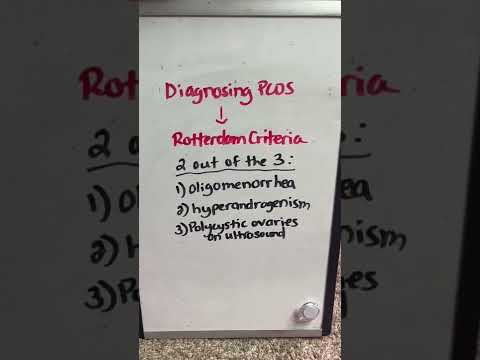 Diagnosing PCOS
↓
Rotterdam Criteria
2 out of the 3:
1) oligomenorrhea
2) hyperandrogenism
3) Polycystic ovaries
on ultrasound